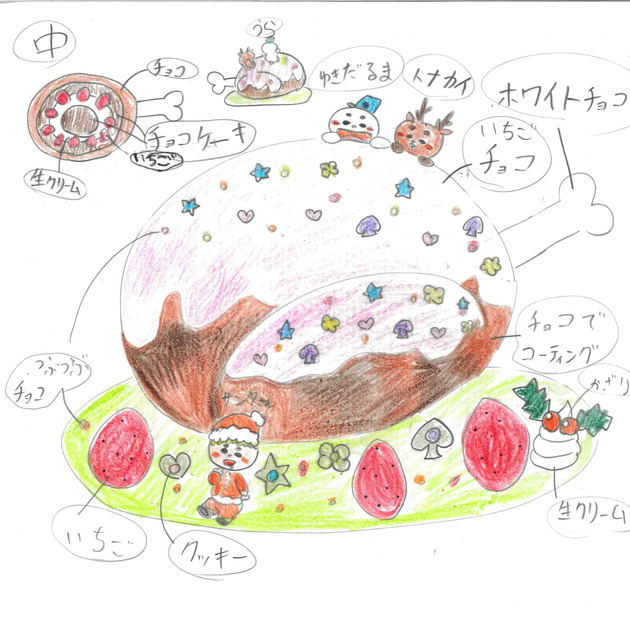 中
うら
チョコ
ゆきだるま
トナカイ
ホワイトチョコ
チョコケーキ
いちご
生クリーム
いちご
チョコ
チョコで
コーティング
つぶつぶ
チョコ
サンタ
かざり
いちご
クッキー
生クリーム